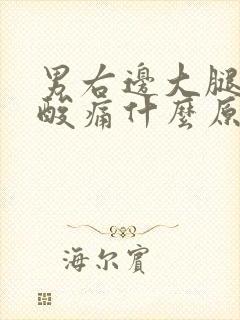 男右邊大腿
酸痛什麼原
海尔賓